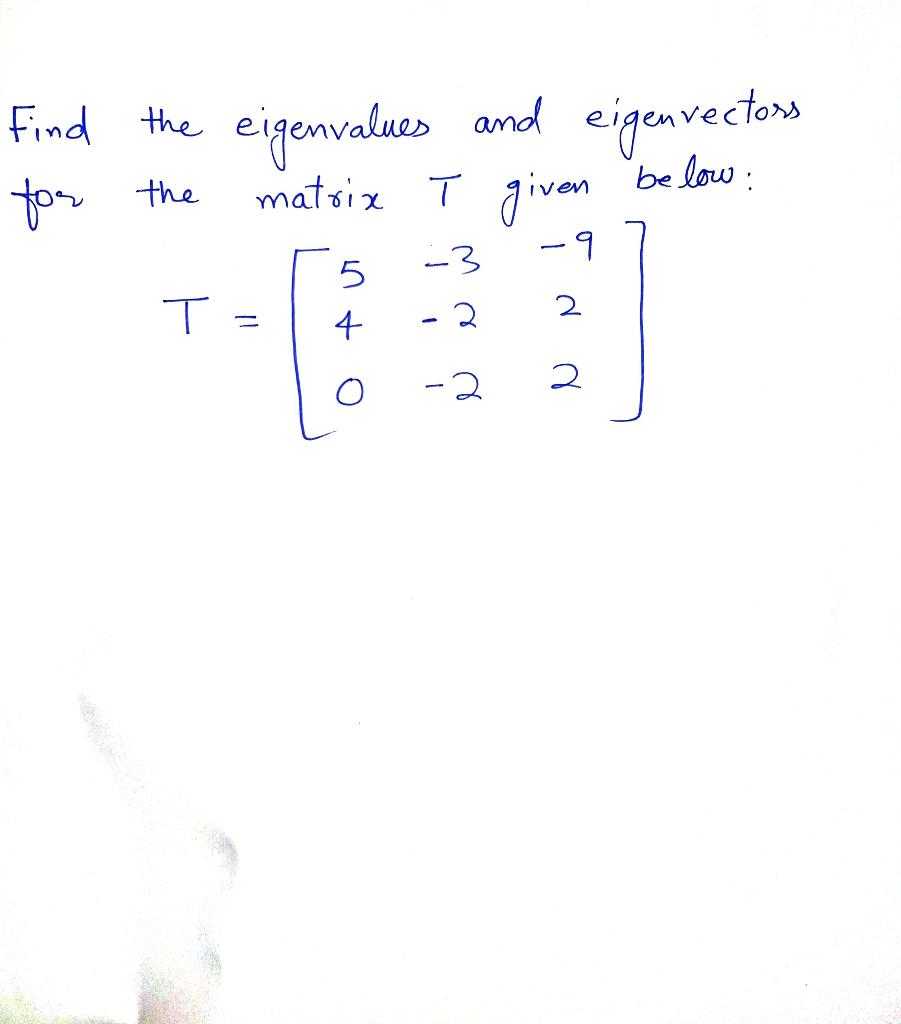 Find the eigenvalues and eigenvectors
for the matrix T given below:
T = [ 5 -3 -9
4 -2 2
0 -2 2 ]